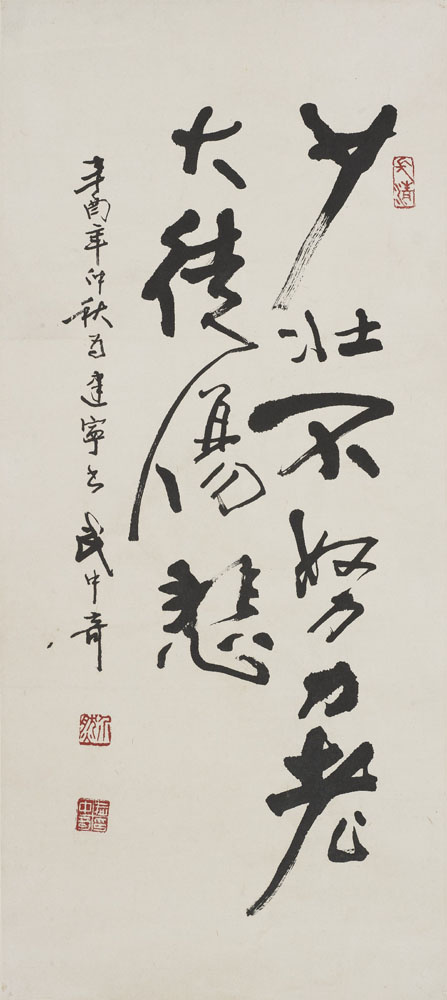 少壮不努力老
大徒傷悲
辛酉年仲秋为建寧书 武中奇